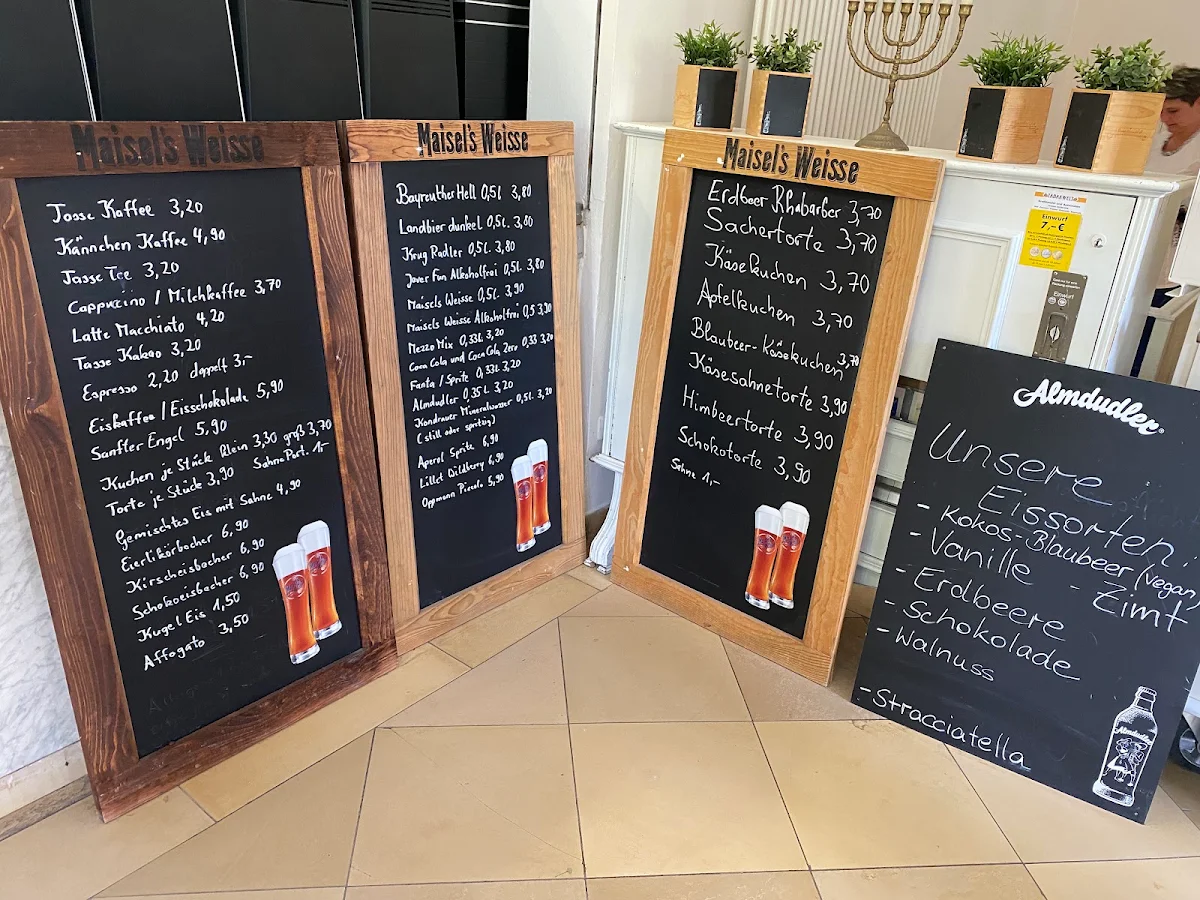 Maisel's Weisse
Tasse Kaffee 3,20
Kännchen Kaffee 4,90
Tasse Tee 3,20
Cappuccino / Milchkaffee 3,70
Latte Macchiato 4,20
Tasse Kakao 3,20
Espresso 2,20 doppelt 3,-
Eiskaffee / Eisschokolade 5,90
Sanfter Engel 5,90
Kuchen je Stück klein 3,30 groß 3,70
Torte je Stück 3,90 Sahne Port. 1,-
Gemischtes Eis mit Sahne 4,90
Eierlikörbecher 6,90
Kirscheisbecher 6,90
Schokoeisbecher 6,90
Kugel Eis 1,50
Affogato 3,50
Maisel's Weisse
Bayreuther Hell 0,5l 3,80
Landbier dunkel 0,5l. 3,80
Krug Radler 0,5l. 3,80
Jever Fun Alkoholfrei 0,5l. 3,80
Maisels Weisse 0,5l. 3,90
Maisels Weisse Alkoholfrei 0,5 3,90
Mezzo Mix 0,33l 3,20
Coca Cola und Coca Cola Zero 0,33 3,20
Fanta / Sprite 0,33l 3,20
Almdudler 0,35l. 3,20
Kondrauer Mineralwasser 0,5l. 3,20
(still oder spritzig)
Aperol Spritz 6,90
Lillet Wildberry 6,90
Oppmann Piccolo 5,90
Maisel's Weisse
Erdbeer Rhabarber 3,70
Sachertorte 3,70
Käsekuchen 3,70
Apfelkuchen 3,70
Blaubeer-Käsekuchen 3,70
Käsesahnetorte 3,90
Himbeertorte 3,90
Schokotorte 3,90
Sahne 1,-
Einwurf
7,- €
Einwurf
Almdudler®
Unsere
Eissorten:
- Kokos-Blaubeer (vegan)
- Vanille - Zimt
- Erdbeere
- Schokolade
- Walnuss
- Stracciatella
Almdudler